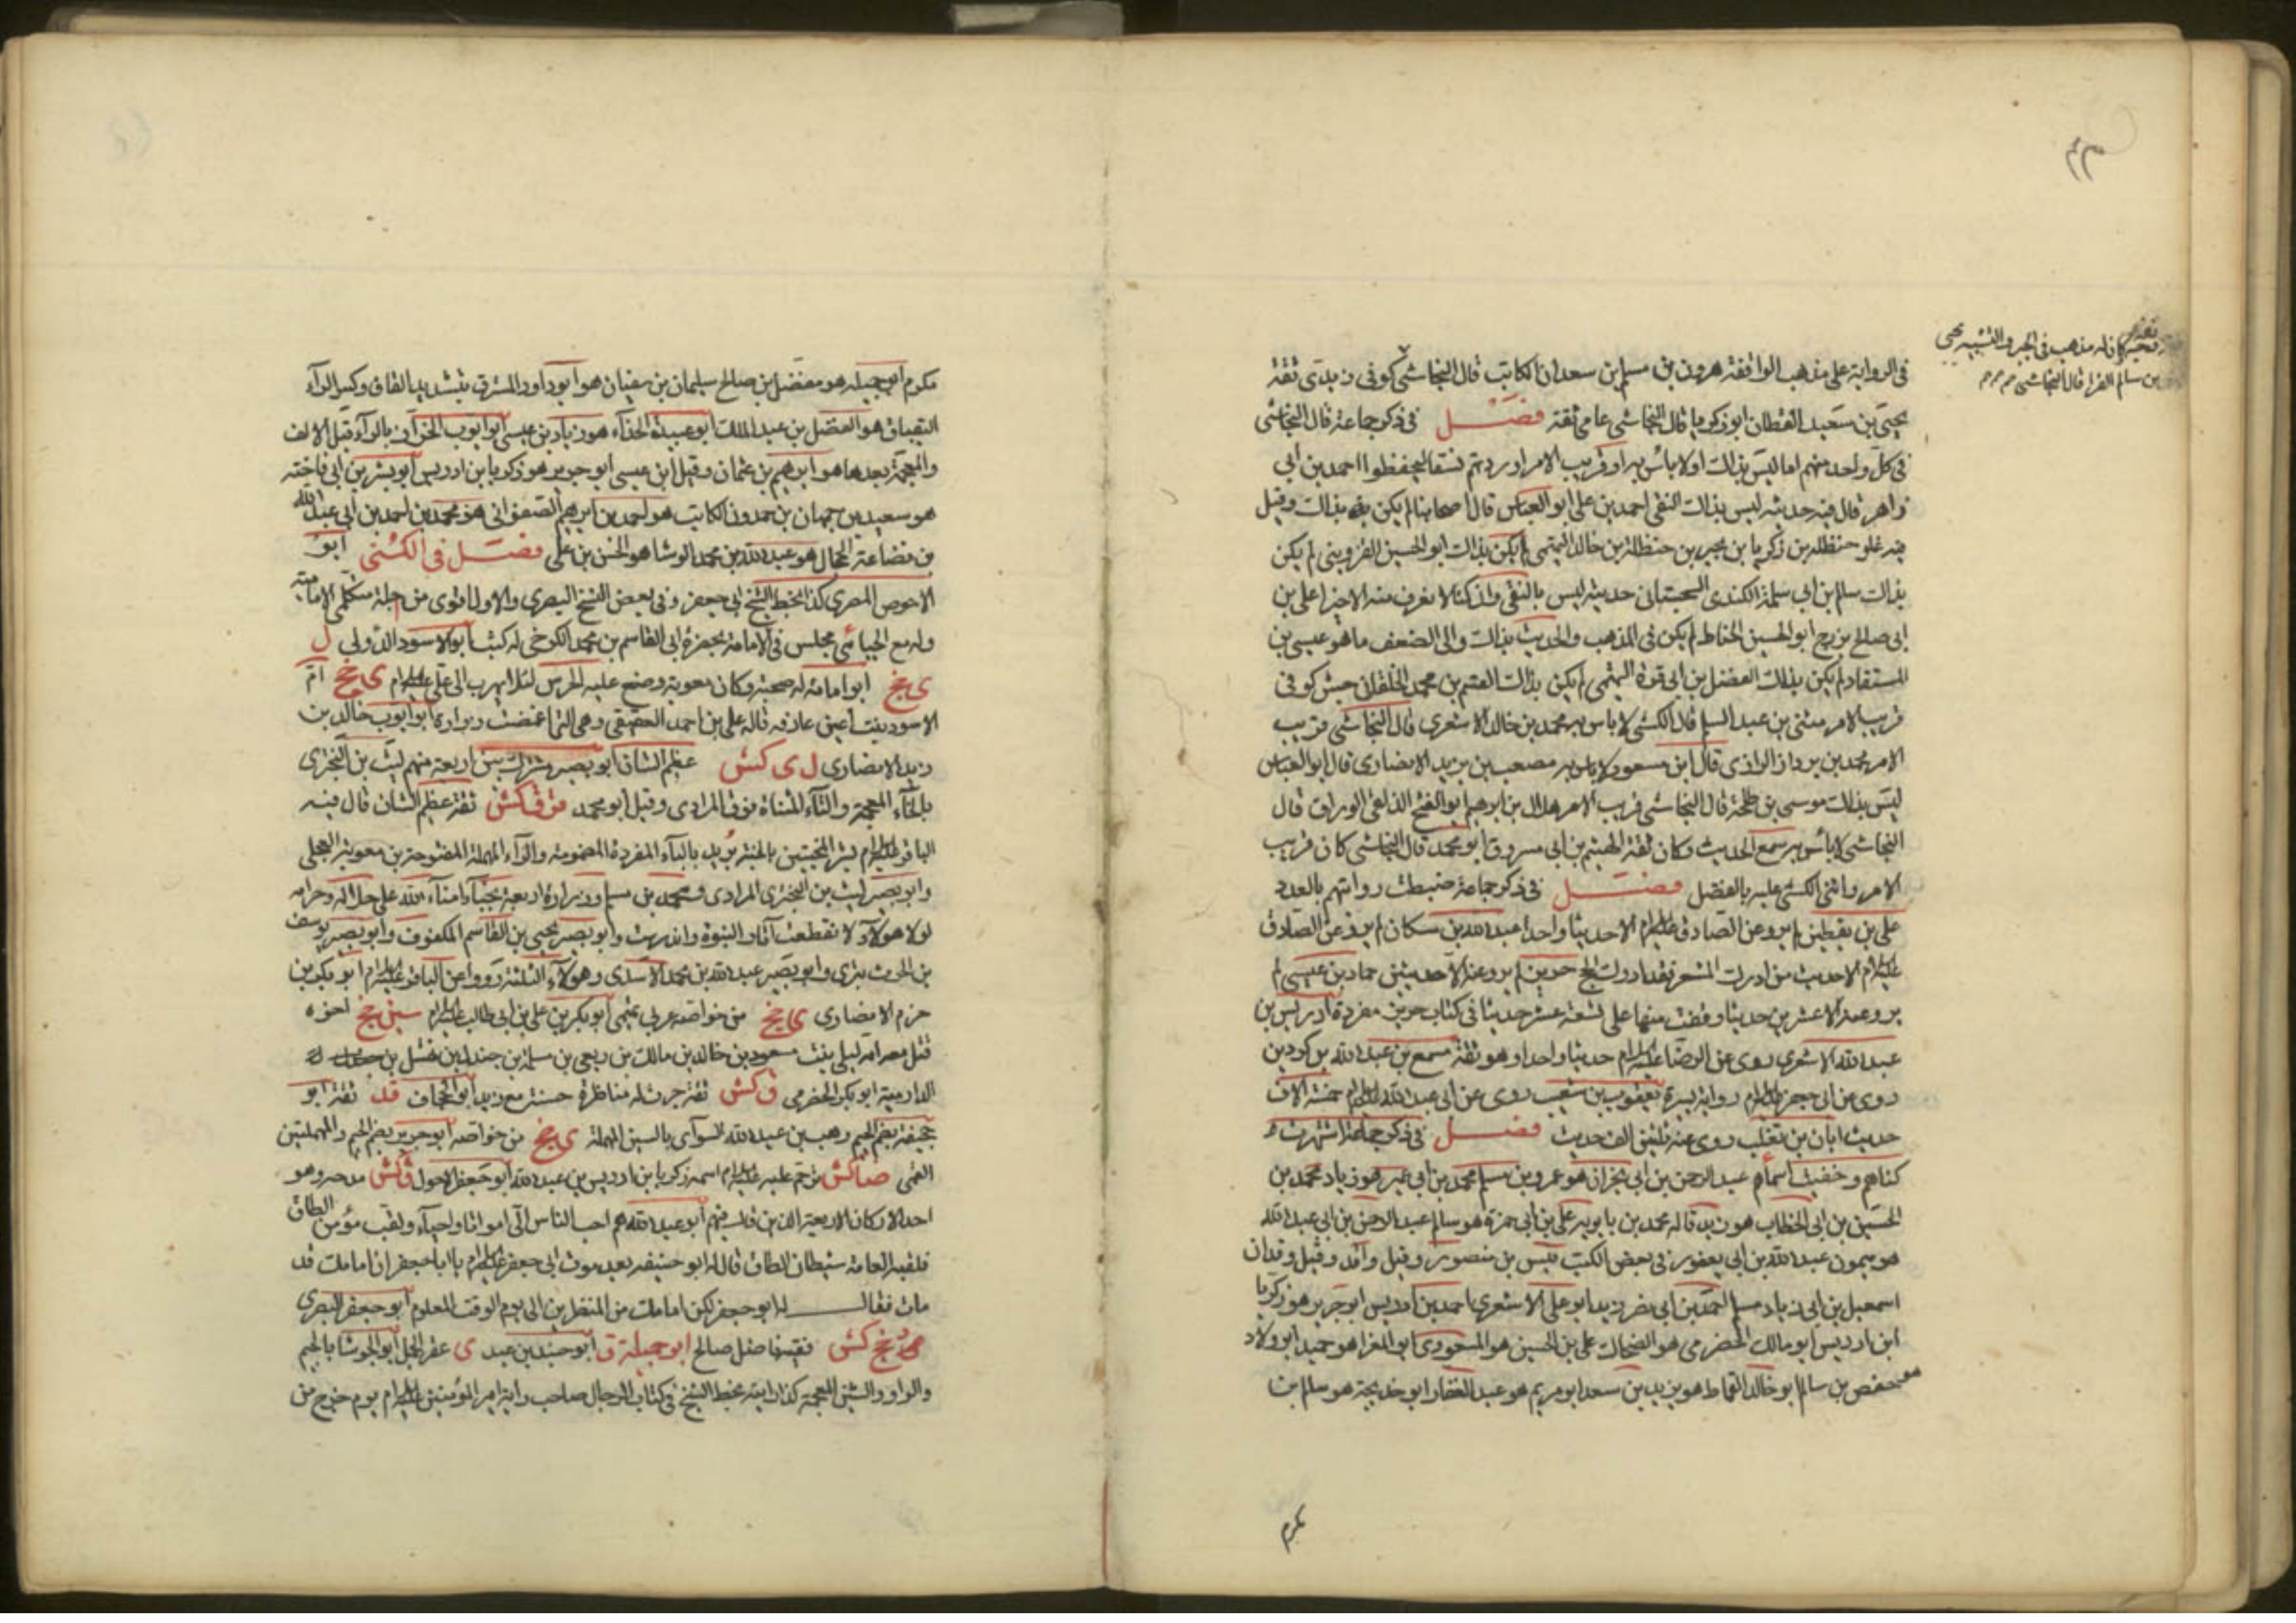 في الرواية على مذهب الواقفة هرون بن مسلم بن سعدان الكاتب قال النجاشي كوفي زيدى ثقة
يحيى بن سعيد القطان ابو زكريا قال النجاشي عامي ثقة فصل في ذكر جماعة قال النجاشي
في كل واحد منهم اما ليس بذلك او لا بأس به او قريب الامر اوردتهم نسقا ليحفظوا احمد بن ابي
زاهر قال فيه حديثه ليس بذلك النقي احمد بن علي ابو العباس قال اصحابنا لم يكن بذلك وقيل
فيه غلو حنظلة بن زكريا بن يحيى بن حنظلة بن خالد التميمي لم يكن بذلك ابو الحسين القزويني لم يكن
بذلك سلم بن ابي سلمة الكندي السجستاني حديثه ليس بالنقي وان كنا لا نعرف منه الا خيرا علي بن
ابي صالح بزرج ابو الحسين الحناط لم يكن في المذهب والحديث بذلك والى الضعف ما هو عيسى بن
المستفاد لم يكن بذلك الفضل بن ابي قرة التميمي لم يكن بذلك القسم بن محمد الخلقاني كوفي
قريب الامر مثنى بن عبد السلم قال الكشي لا باس به محمد بن خالد الاشعري قال النجاشي قريب
الامر محمد بن يزداد الرازي قال ابن مسعود لا باس به مصعب بن يزيد الانصاري قال ابو العباس
ليس بذلك موسى بن طلحة قال النجاشي قريب الامر هلال بن ابرهيم ابو الفتح الدلفي الوراق قال
النجاشي لا بأس به سمع الحديث وكان ثقة الهيثم بن ابي مسروق ابو محمد قال النجاشي كان قريب
الامر واثنى الكشي عليه بالفضل فصل في ذكر جماعة ضبطت روايتهم بالعدد
علي بن يقطين لم يرو عن الصادق عليه السلام الا حديثا واحدا عبد الله بن مسكان لم يرو عن الصادق
عليه السلام الا حديث من ادرك المشعر فقد ادرك الحج حريز لم يرو عنه الا حديثين حماد بن عيسى لم
يرو عنه الا عشرين حديثا وقفت منها على تسعة عشر حديثا في كتاب حريز مفردة ادريس بن
عبد الله الاشعري روى عن الرضا عليه السلام حديثا واحدا وهو ثقة مسمع بن عبد الله بن كردين
روى عن ابي جعفر عليه السلام رواية يسيرة يعقوب بن شعيب روى عن ابي عبد الله عليه السلام خمسة الاف
حديث ابان بن تغلب روى عنه ثلثين الف حديث فصل في ذكر جماعة اشتهرت
كناهم وخفيت اسماؤهم عبد الرحمن بن ابي نجران هو عمرو بن مسلم محمد بن ابي عمير هو زياد محمد بن
الحسين بن ابي الخطاب هو زيد قاله محمد بن بابويه علي بن ابي حمزة هو سالم عبد الرحمن بن ابي عبد الله
هو ميمون عبد الله بن ابي يعفور في بعض الكتب قيس بن منصور وقيل واقد وقيل وقدان
اسمعيل بن ابي زياد مسلم احمد بن ابي نصر زيد ابو علي الاشعري احمد بن ادريس ابو جرير هو زكريا
ابن ادريس ابو مالك الحضرمي هو الضحاك علي بن الحسين هو المسعودي ابو المغرا هو حميد ابو ولاد
هو حفص بن سالم ابو خالد القماط هو يزيد بن سعد ابو مريم هو عبد الغفار ابو خديجة هو سالم بن
مكرم
كان له مذهب في الجبر والتشبيه يحيى
بن سالم الفرا قال النجاشي
مكرم ابو جميلة هو مفضل بن صالح سليمان بن سفيان هو ابو داود المسترق بتشديد القاف وكسر الراء
البقباق هو الفضل بن عبد الملك ابو عبيدة الحذاء هو زياد بن عيسى ابو ايوب الخزاز بالراء قبل الالف
والمعجمة بعدها هو ابرهيم بن عثمان وقيل ابن عيسى ابو جرير هو زكريا بن ادريس ابو بشر بن ابي فاخته
هو سعيد بن جهمان بن حمدون الكاتب هو احمد بن ابرهيم الصفواني هو محمد بن احمد بن ابي عبد الله
بن قضاعة الجمال هو عبد الله بن محمد الوشا هو الحسن بن علي فصل في الكنى ابو
الاحوص المصري كذا بخط الشيخ ابي جعفر وفي بعض النسخ البصري والاول اقوى من جلة متكلمي الامامية
وله مع الجبائي مجلس في الامامة بحضرة ابي القاسم بن محمد الكرخي له كتب ابو الاسود الدؤلي ل
ى جخ ابو امامة له صحبة وكان معوية وضع عليه الحرس لئلا يهرب الى علي عليه السلام ى جخ ام
الاسود بنت اعين عارفة قاله علي بن احمد العقيقي وهي التي اغمضت زرارة ابو ايوب خالد بن
زيد الانصاري ل ى كش عظيم الشان ابو بصير مشترك بين اربعة منهم ليث بن البختري
بالخاء المعجمة والتاء المثناة فوق المرادي وقيل ابو محمد قر ق كش ثقة عظيم الشان قال فيه
الباقر عليه السلام بشر المخبتين بالجنة بريد بالباء المفردة المضمومة والراء المهملة المفتوحة بن معوية العجلي
وابو بصير ليث بن البختري المرادي ومحمد بن مسلم وزرارة اربعة نجباء امناء الله على حلاله وحرامه
لولا هولاء لانقطعت اثار النبوة واندرست وابو بصير يحيى بن القاسم المكفوف وابو بصير يوسف
بن الحرث بتري وابو بصير عبد الله بن محمد الاسدي وهولاء الثلثة رووا عن الباقر عليه السلام ابو بكر بن
حزم الانصاري ى جخ من خواصه عربي تميمي ابو بكر بن علي بن ابي طالب عليه السلام سين جخ اخوه
قتل معه امه ليلى بنت مسعود بن خالد بن مالك بن ربعي بن سلمة بن جندل بن نهشل بن
الدارمية ابو بكر الحضرمي ق كش ثقة جرت له مناظرة حسنة مع زيد ابو الجحاف قد ثقة ابو
جحيفة بضم الجيم وهب بن عبد الله السوآي بالسين المهملة ى جخ من خواصه ابو جرير بضم الجيم والمهملتين
القمي ضا كش ترحم عليه عليه السلام اسمه زكريا بن ادريس بن عبد الله ابو جعفر الاحول ق كش مدحه وهو
احد الاركان الاربعة الذين قال فيهم ابو عبد الله هم احب الناس الي امواتا واحياء ولقب مؤمن الطاق
فلقبه العامة شيطان الطاق قال له ابو حنيفه بعد موت ابي جعفر عليه السلام يا ابا جعفر ان امامك قد
مات فقال له ابو جعفر لكن امامك من المنظرين الى يوم الوقت المعلوم ابو جعفر البصري
جخ كش فقيه فاضل صالح ابو جميلة ق ابو جنيد بن عبد ى عقر الجمل ابو الجوشا بالجيم
والواو والشين المعجمة كذا رايته بخط الشيخ في كتاب الرجال صاحب راية امير المؤمنين عليه السلام يوم خرج من